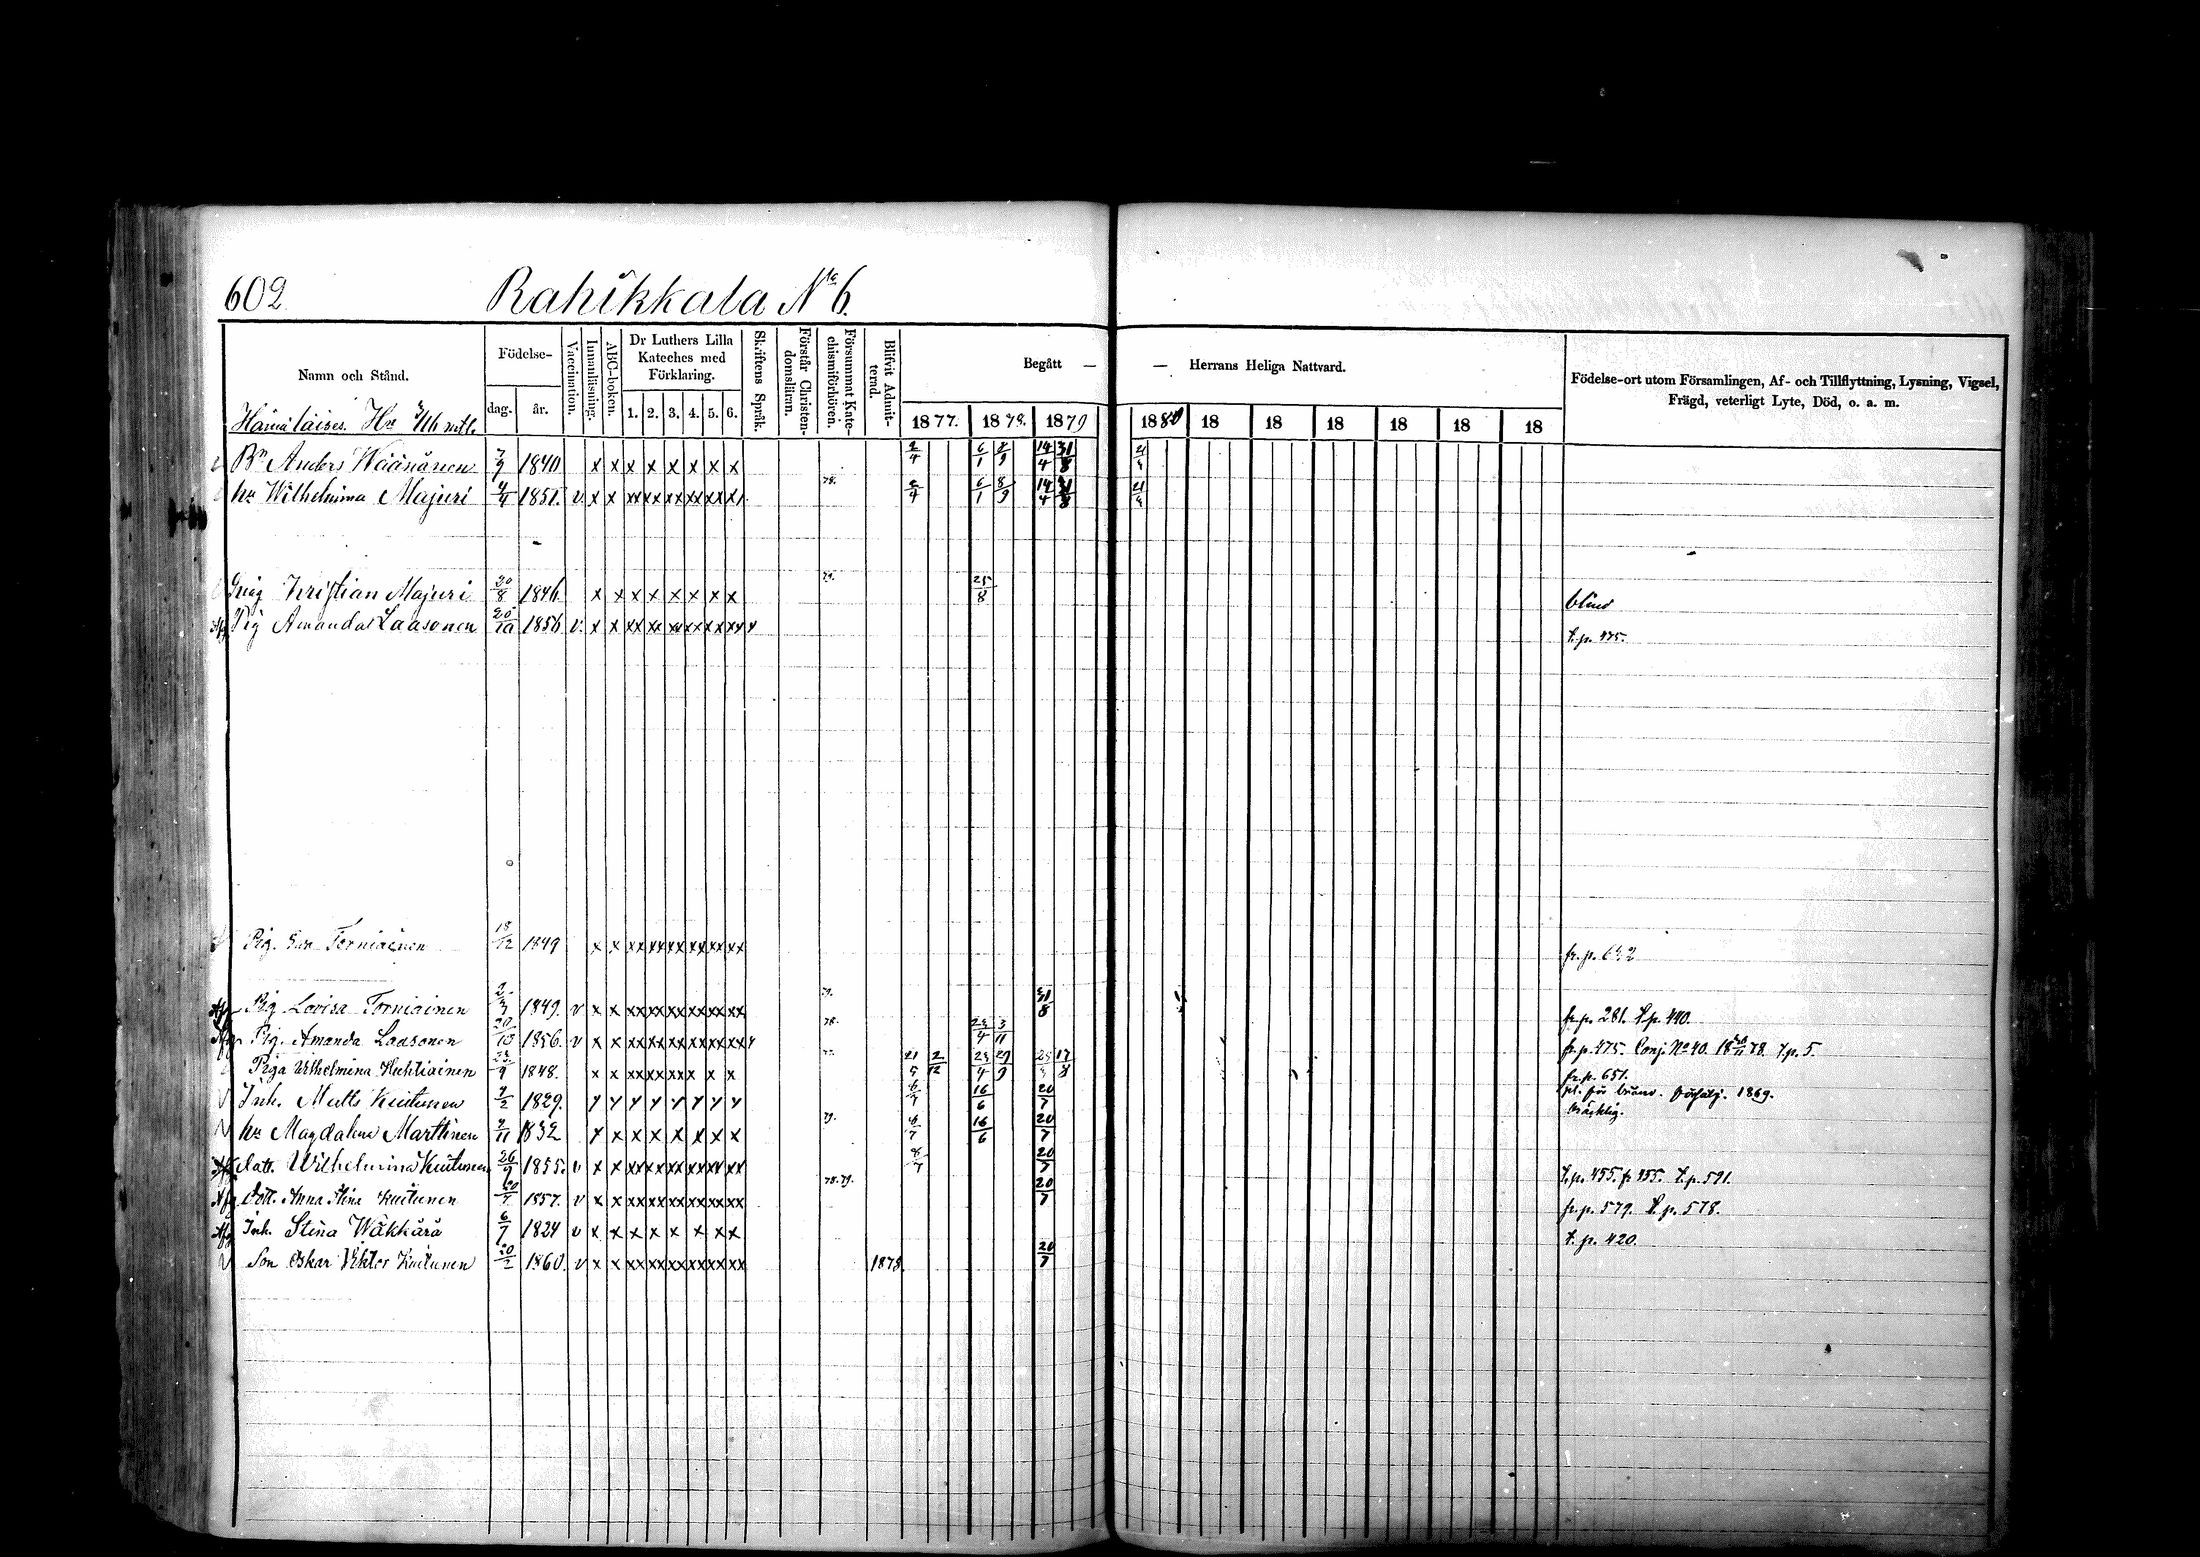 602 Rahikkala No 6.
Namn och Stånd. Födelse- dag. år. Vaccination. Innanläsning. ABC-boken. Dr Luthers Lilla Kateches med Förklaring. 1. 2. 3. 4. 5. 6. Skriftens Språk. Förstår Christendomsläran. Försummat Katechismiförhören. Blifvit Admitterad. Begått — — Herrans Heliga Nattvard. Födelse-ort utom Församlingen, Af- och Tillflyttning, Lysning, Vigsel, Frägd, veterligt Lyte, Död, o. a. m.
1877. 1878. 1879 1880 18 18 18 18 18 18
Hämäläises. Hn mtl.
Bn Anders Wäänänen 7/9 1840 x x x x x x x x 2/4 6/1 14/4 31/8 21/4
hu Wilhelmina Majuri 4/4 1851. v x x xx xx xx xx xx 78. 2/4 6/1 8/9 14/4 31/8 21/4
Kristian Majuri 20/8 1846 x x x x x x x x 79. 25/8 blind
Pig Amanda Laasonen 20/10 1856 v. x x xx xx xx xx t. p. 475.
Pig. Eva Torniainen 18/12 1849 x x xx xx xx xx xx xx fr. p.
Pig. Lovisa Torniainen 2/3 1849. v x x xx xx xx xx xx xx 79. 31/8 fr. p. 281. t. p. 440.
Pig. Amanda Laasonen 20/10 1856. v x x xx xx xx xx xx 78. 24/4 3/11 fr. p. 475. No 40. 78. t. p. 5.
Piga Wilhelmina Huhtiainen 1848. x x 21 2/12 29/9 17/8 fr. p. 651.
Inh. Matts Kuitunen 9/2 1829. 16/6 20/7 1869.
hu Magdalena Martlinen 9/11 1832 x x x x x x x 79. 6/7 16/6 20/7
Datt. Wilhelmina Kuitunen 26/9 1855. v x x xx xx xx xx xx xx 20/7 t. p. 455. t. p. 591.
Dott. Anna Stina Kuitunen 1857. v x x xx xx xx xx xx xx 78. 79. 20/7 fr. p. 579. t. p. 578.
Inh. Stina Wäkkärä 6/7 1824 v x x x x x x x x t. p. 420.
Son Oskar Viktor Kuitunen 20/2 1860. v x x xx xx xx xx xx xx 1878. 20/7